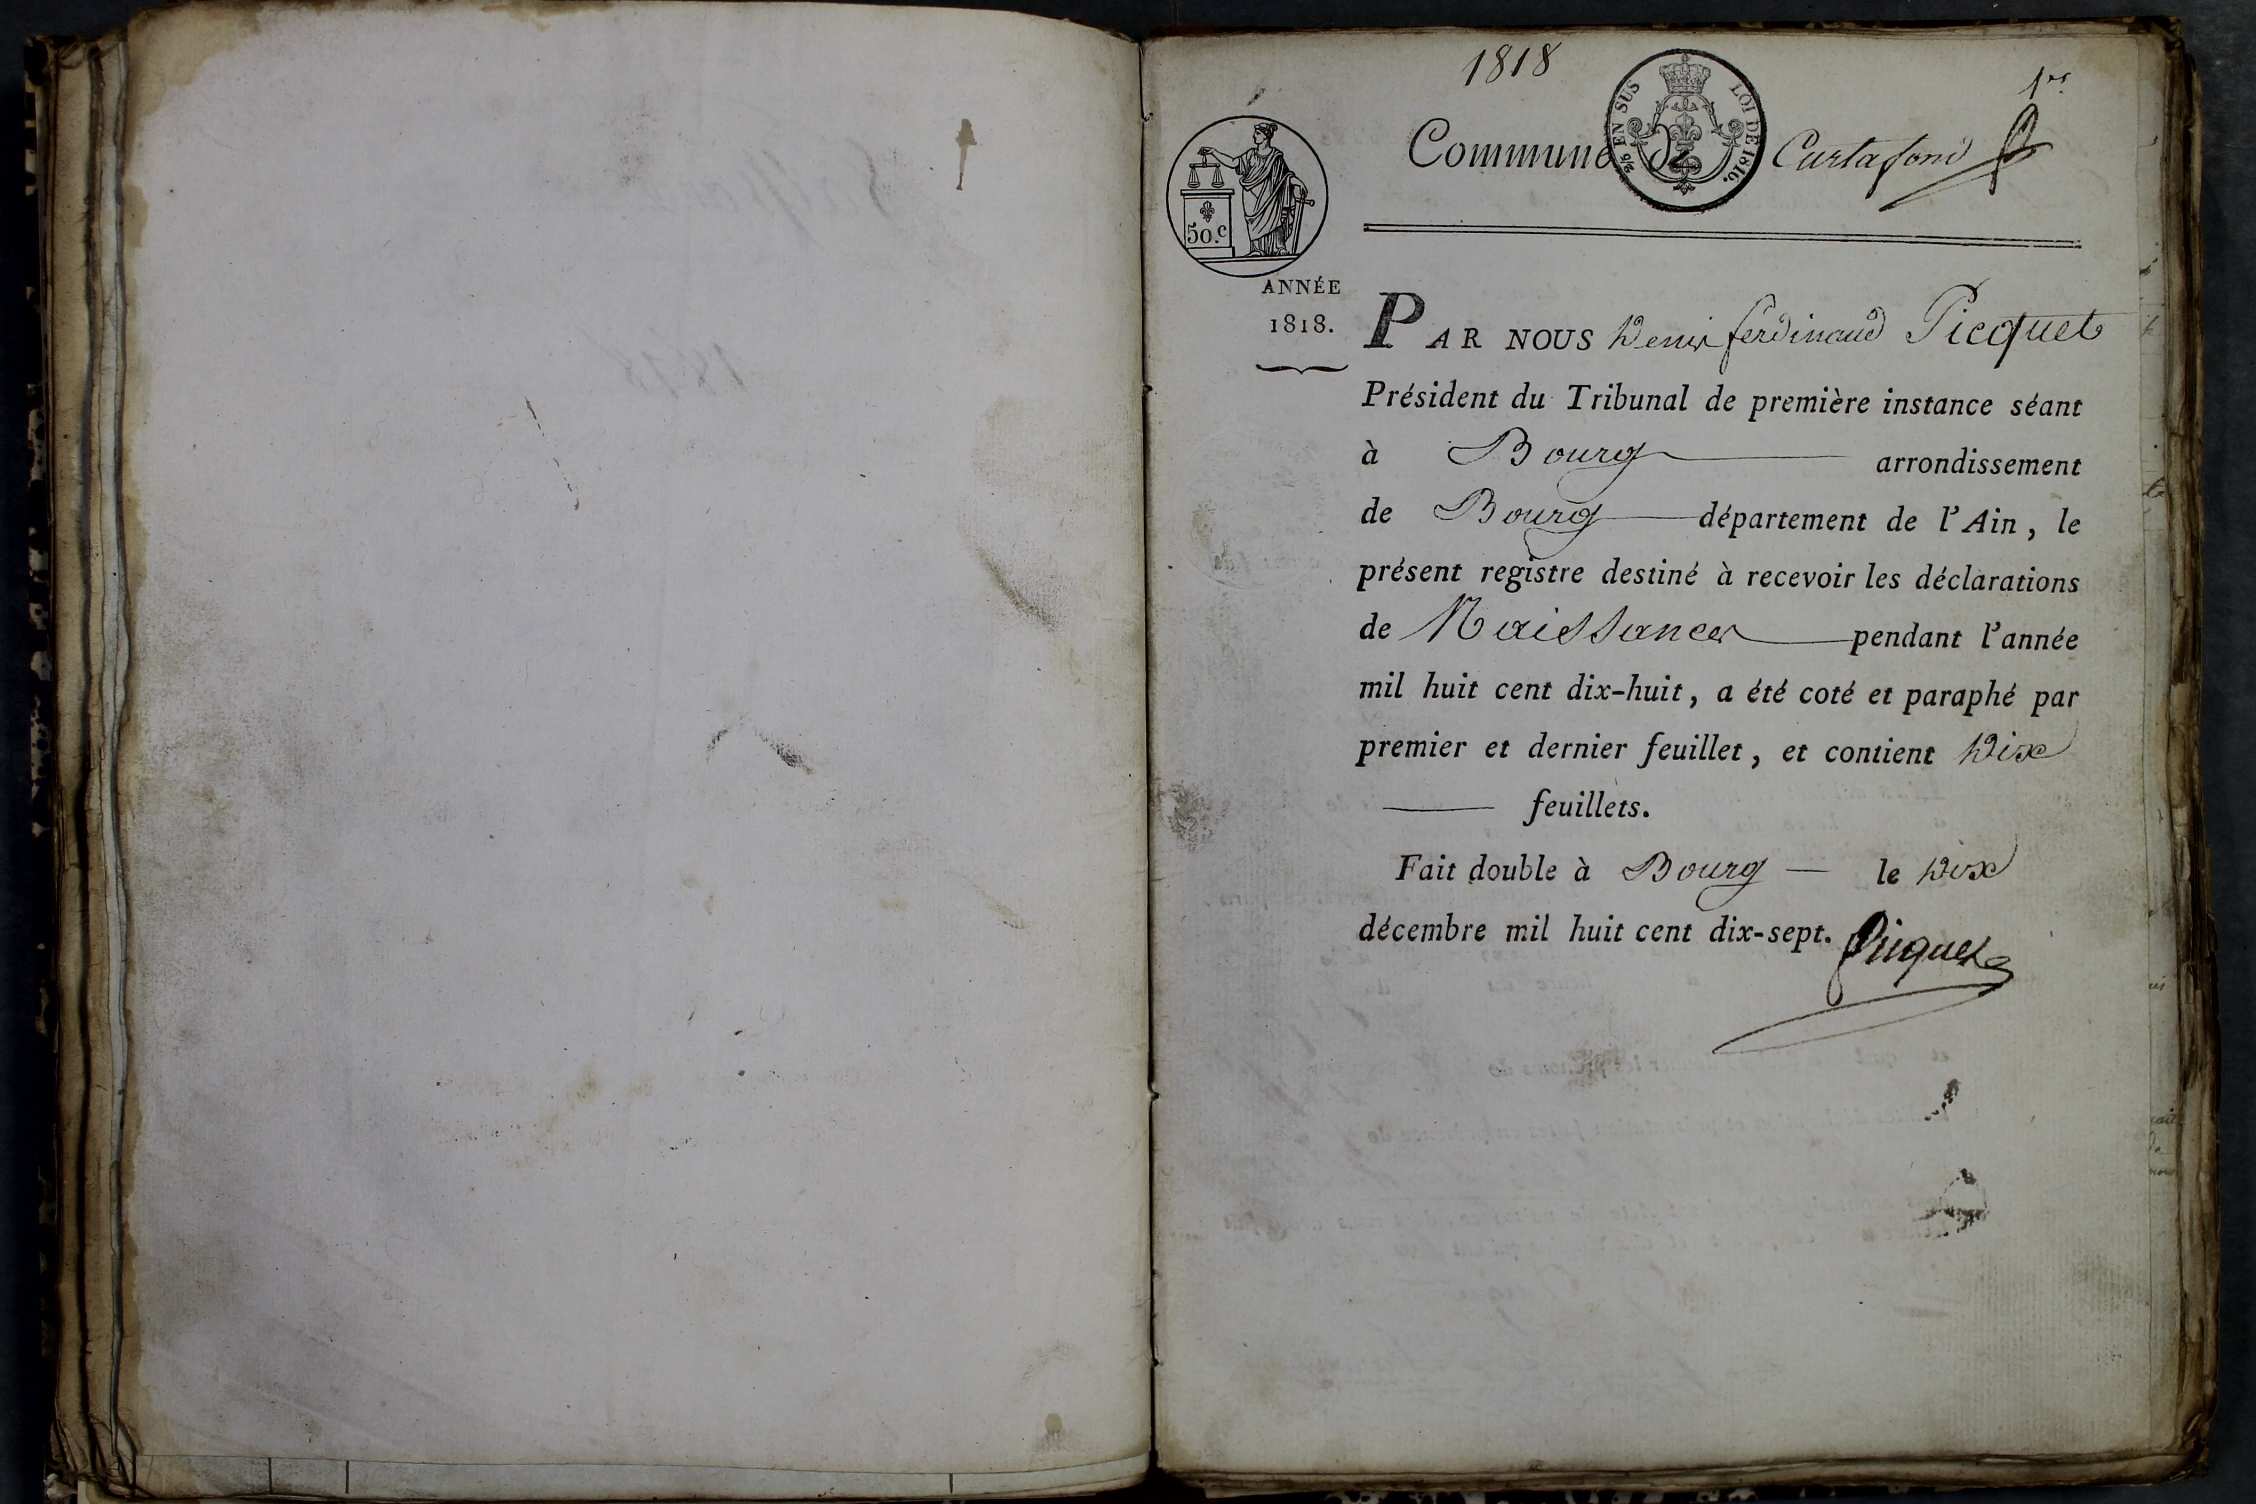 1818
1er
2/5 EN SUS LOI DE 1816.
Commune de Curtafond
50.c
ANNÉE
1818.
PAR NOUS Denis ferdinand Picquet
Président du Tribunal de première instance séant
à Bourg arrondissement
de Bourg département de l'Ain, le
présent registre destiné à recevoir les déclarations
de Naissances pendant l'année
mil huit cent dix-huit, a été coté et paraphé par
premier et dernier feuillet, et contient Dix
feuillets.
Fait double à Bourg — le Dix
décembre mil huit cent dix-sept.
Picquet